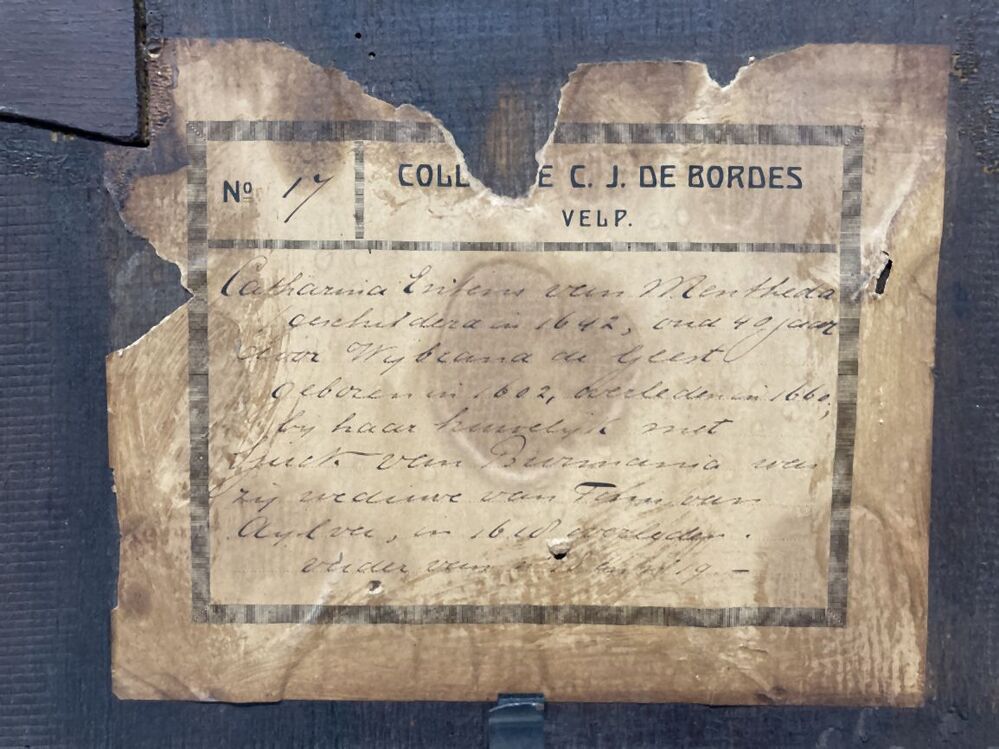 No 17
COLL E C. J. DE BORDES
VELP.
Catharina van Mentheda
geschilderd in 1642, oud 49 jaar
door Wijbrand de Geest
geboren in 1602, overleden in 1660,
bij haar huwelijk met
van Burmania was
zij weduwe van van
Aylva, in 1618 overleden.
19 —